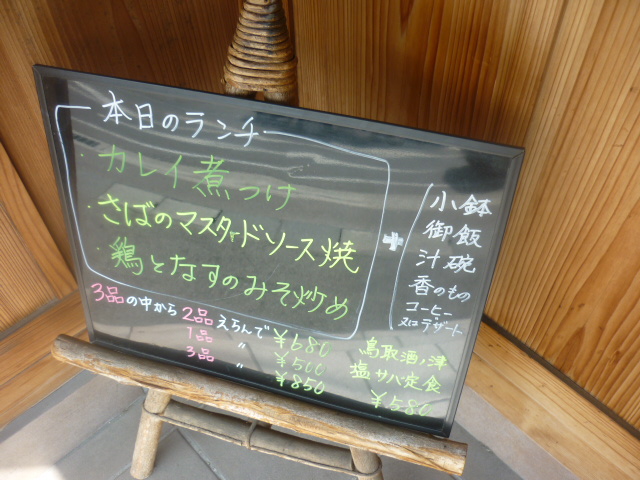 本日のランチ
・カレイ煮つけ
・さばのマスタードソース焼
・鶏となすのみそ炒め
+
小鉢
御飯
汁碗
香のもの
コーヒー
又はデザート
3品の中から2品えらんで¥680
1品 〃 ¥500
3品 〃 ¥850
鳥取酒ノ津
塩サバ定食
¥580